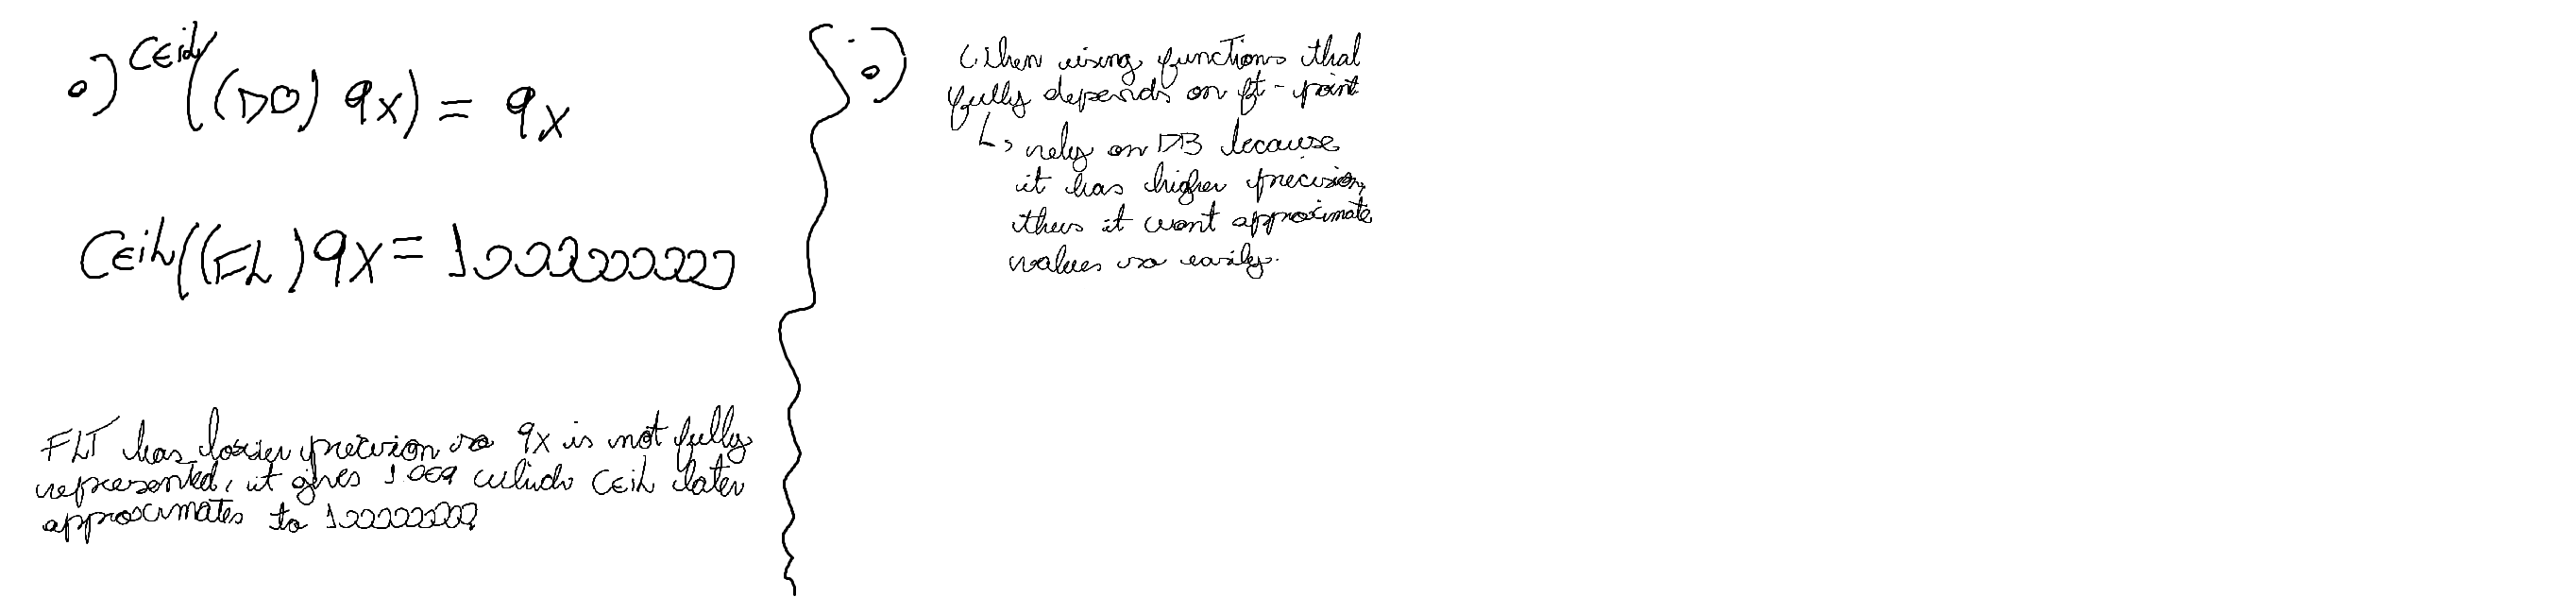 Ceil((DO) 9x) = 9x
Ceil((FL)9x = 1000000000
FLT has lower precision so 9x is not fully
represented, it gives 1.0e9 which Ceil later
approximates to 1000000000
When using functions that
fully depends on flt-point
↳ rely on DB because
it has higher precision,
thus it wont approximate
values so easily.